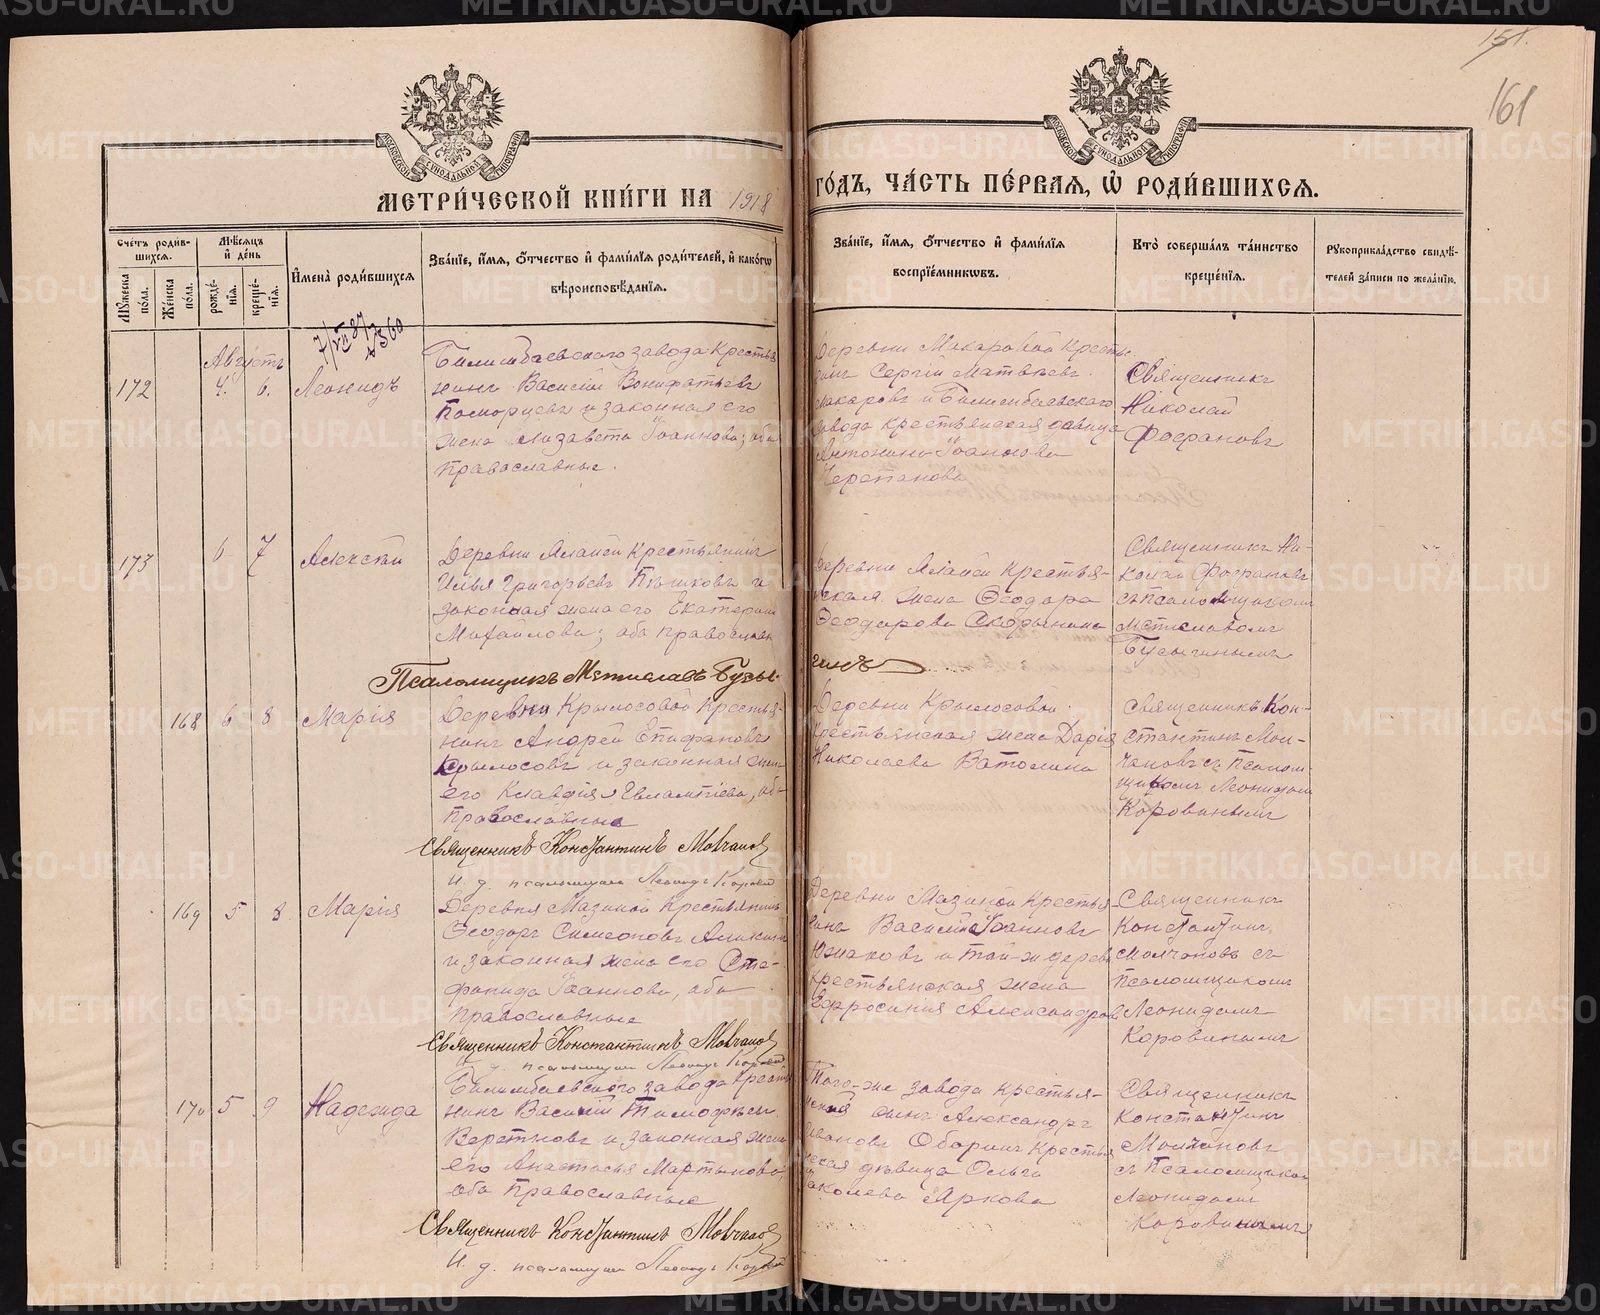 151.
161
МЕТРИ́ЧЕСКОЙ КНИ́ГИ НА 1918
ГО́ДЪ, ЧА́СТЬ ПЕ́РВАЯ, Ѡ РОДИ́ВШИХСЯ.
Сче́тъ роди́вшихся.
Мѣ́сяцъ и де́нь
Му́жеска по́ла.
Же́нска по́ла.
рожде́нія.
креще́нія.
И҆мена̀ роди́вшихся
Зва́ніе, и҆́мя, ѻ҆́тчество и҆ фами́лія роди́телей, и҆ како́гѡ
вѣроисповѣ́данія.
Зва́ніе, и҆́мя, ѻ҆́тчество и҆ фами́лія
воспріе́мникѡвъ.
Кто̀ соверша́лъ та́инство
креще́нія.
Рꙋкоприкла́дство свидѣ́-
телей за́писи по жела́нію.
Августъ
172 4. 6. Леонидъ
Билимбаевскаго завода крестья
нинъ Василій Вонифатьевъ
Поморцевъ и законная его
жена Елизавета Іоаннова; оба
православные.
Деревни Макаровой кресть
нинъ Сергій Матвѣевъ
Макаровъ и Билимбаевскаго
завода крестьянская дѣвица
Антонина Іоаннова
Черепанова
Священникъ
Николай
Фофановъ
173 6 7 Алексѣй
Деревни Алапеи крестьянинъ
Илья Григорьевъ Пѣшковъ и
законная жена его Екатерина
Михайлова; оба православн
крестья-
нская жена Ѳеодора
Ѳеодорова Скорынина
Священникъ Ни-
колай Фофановъ
съ псаломщикомъ
Мстиславомъ
Бусыгинымъ
Псаломщикъ Мстиславъ Бусы-
гинъ
168 6 8 Марія
Деревни Крылосовой крестья-
нинъ Андрей Епифановъ
Крылосовъ и законная жена
его Клавдія Евлампіева, оба
православные
Деревни Крылосовой
крестьянская жена Дарія
Николаева Ватолина
Священникъ Кон-
стантинъ Мол-
чановъ съ псалом-
щикомъ Леонидомъ
Коровинымъ
Священникъ Константинъ Молчановъ
И. д. псаломщика Леонидъ Коровин
169 5 8 Марія
Деревня Мазиной крестьянинъ
Ѳеодоръ Симеоновъ Аликинъ
и законная жена его Сте-
фанида Іоаннова, оба
православные
Деревни Мазиной крестья
нинъ Василій Іоанновъ
Южаковъ и той-ж дерев
крестьянская жена
Евфросинія Александров
Священникъ
Константинъ
Молчановъ съ
псаломщикомъ
Леонидомъ
Коровинымъ
Священникъ Константинъ Молчановъ
И. д. псаломщика Леонидъ Коровин
170 5 9 Надежда
Билимбаевскаго завода кресть
нинъ Василій Тимофѣевъ
и законная жена
его Анастасья Мартынова,
оба православные
Того-же завода крестья-
нскій сынъ Александръ
Ивановъ Оборинъ крестья
нская дѣвица Ольга
Яковлева Яркова
Священникъ
Константинъ
Молчановъ
съ псаломщикомъ
Леонидомъ
Коровинымъ
Священникъ Константинъ Молчановъ
И. д. псаломщика Леонидъ Коровин
METRIKI.GASO-URAL.RU